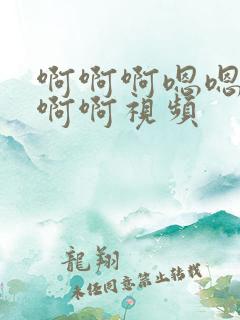 啊啊啊嗯嗯
啊啊視頻
龍翔
未任同意禁止转载